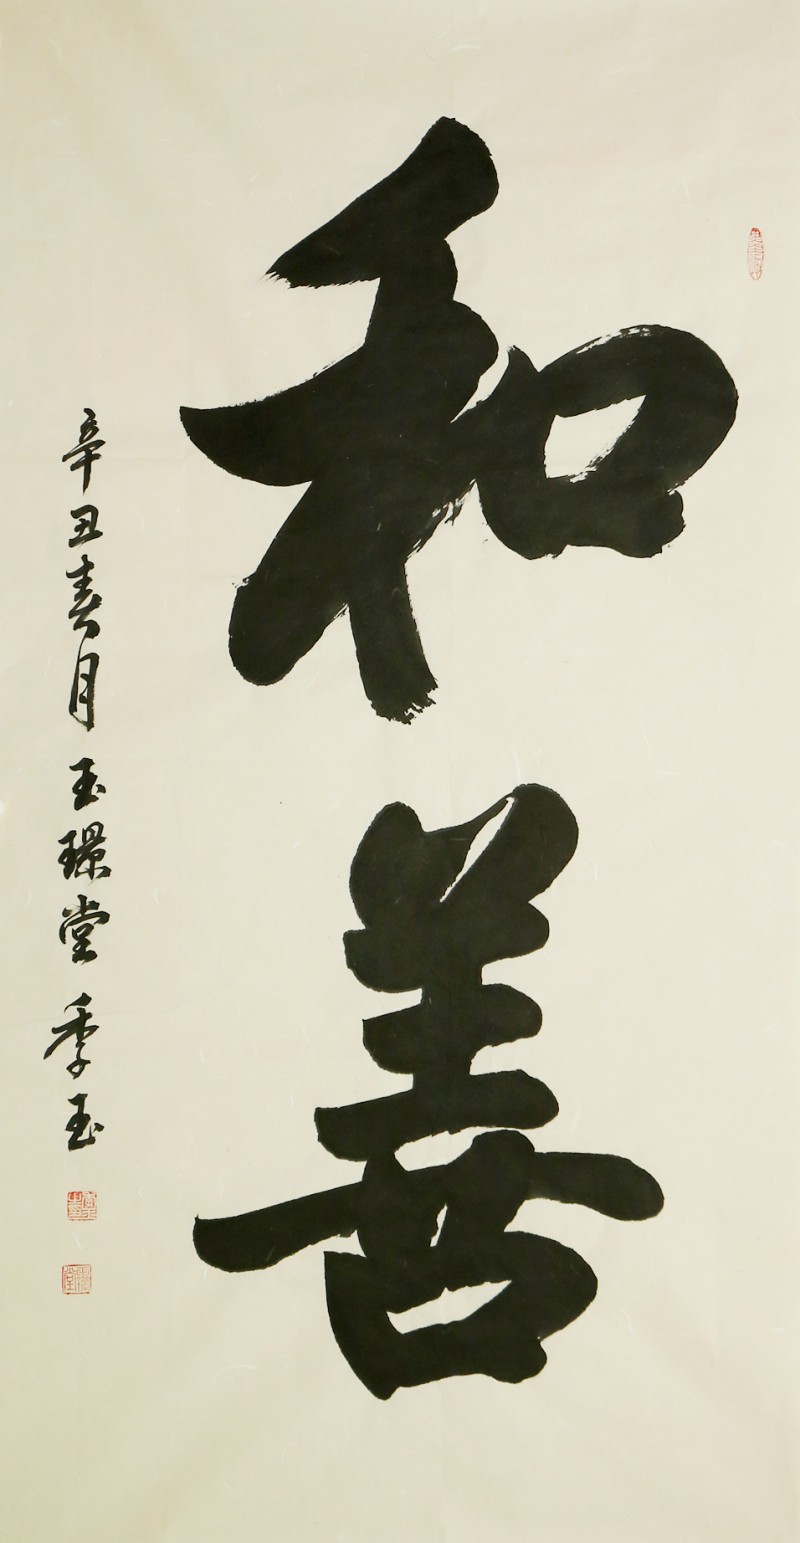 和善
辛丑春月玉璟堂季玉